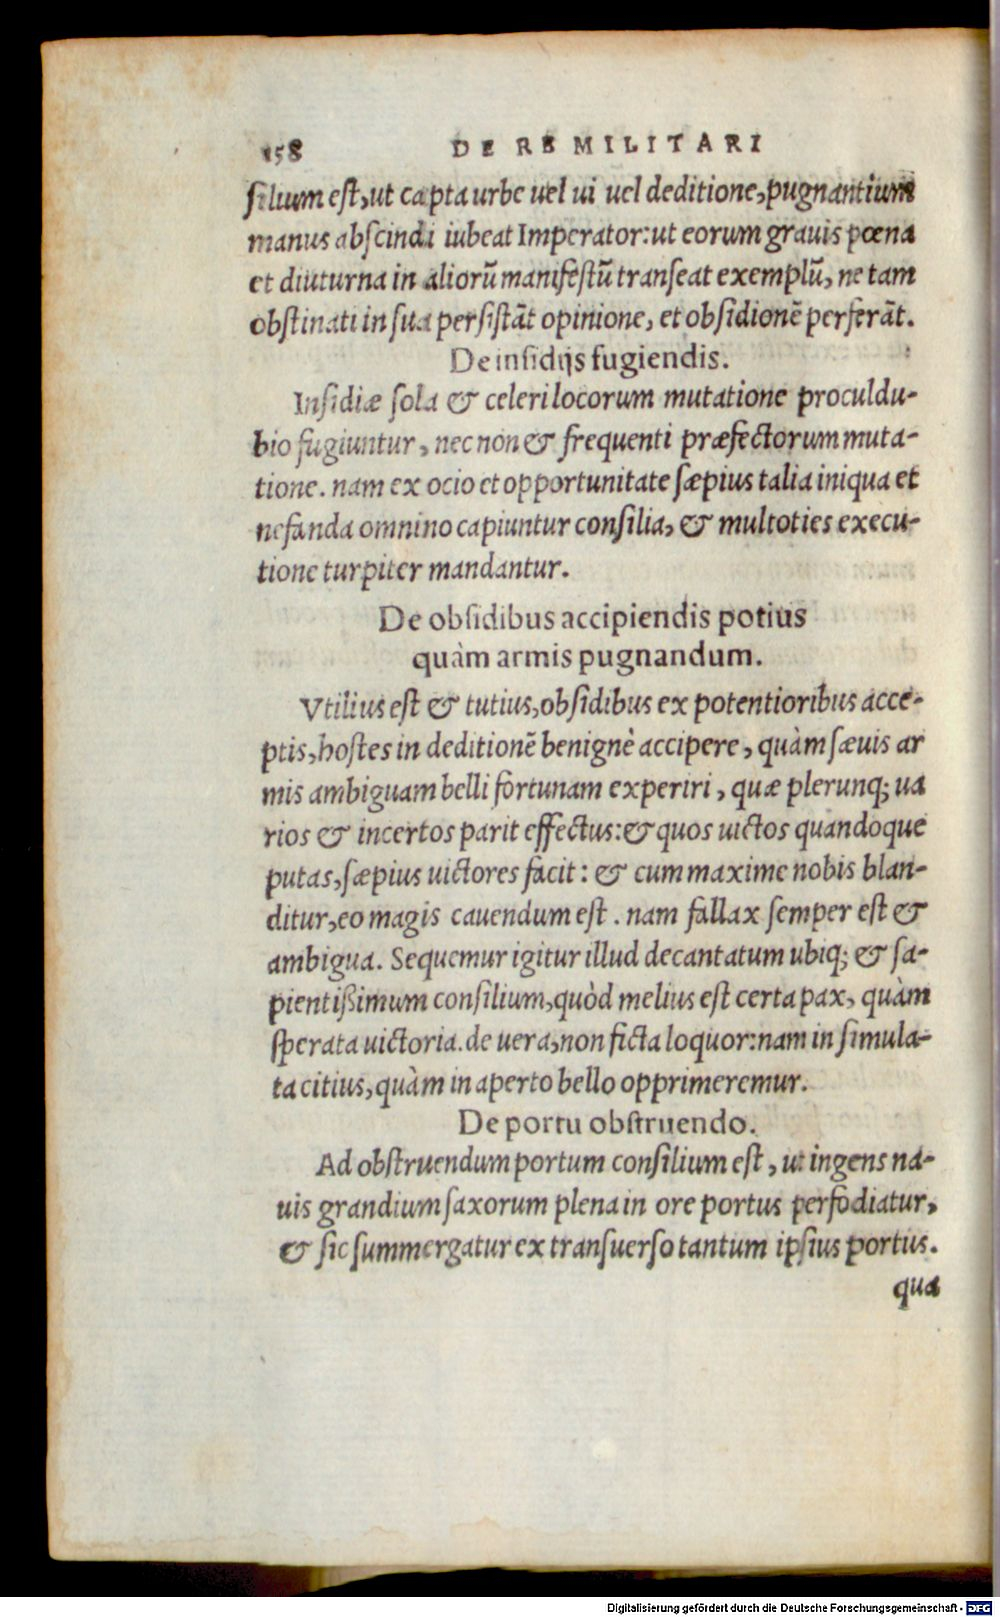 158 DE RE MILITARI
silium est,ut capta urbe uel ui uel deditione,pugnantium
manus abscindi iubeat Imperator:ut eorum grauis pœna
et diuturna in aliorū manifestū transeat exemplū, ne tam
obstinati in sua persistāt opinione, et obsidionē perferāt.
De insidijs fugiendis.
Insidiæ sola & celeri locorum mutatione proculdu-
bio fugiuntur, nec non & frequenti præfectorum muta-
tione. nam ex ocio et opportunitate sæpius talia iniqua et
nefanda omnino capiuntur consilia, & multoties execu-
tione turpiter mandantur.
De obsidibus accipiendis potius
quàm armis pugnandum.
Vtilius est & tutius,obsidibus ex potentioribus acce-
ptis,hostes in deditionē benignè accipere, quàm sæuis ar
mis ambiguam belli fortunam experiri, quæ plerunq; ua
rios & incertos parit effectus:& quos uictos quandoque
putas,sæpius uictores facit: & cum maxime nobis blan-
ditur,eo magis cauendum est. nam fallax semper est &
ambigua. Sequemur igitur illud decantatum ubiq; & sa-
pientißimum consilium,quòd melius est certa pax, quàm
sperata uictoria.de uera,non ficta loquor:nam in simula-
ta citius,quàm in aperto bello opprimeremur.
De portu obstruendo.
Ad obstruendum portum consilium est, ut ingens na-
uis grandium saxorum plena in ore portus perfodiatur,
& sic summergatur ex transuerso tantum ipsius portus.
qua
Digitalisierung gefördert durch die Deutsche Forschungsgemeinschaft - DFG